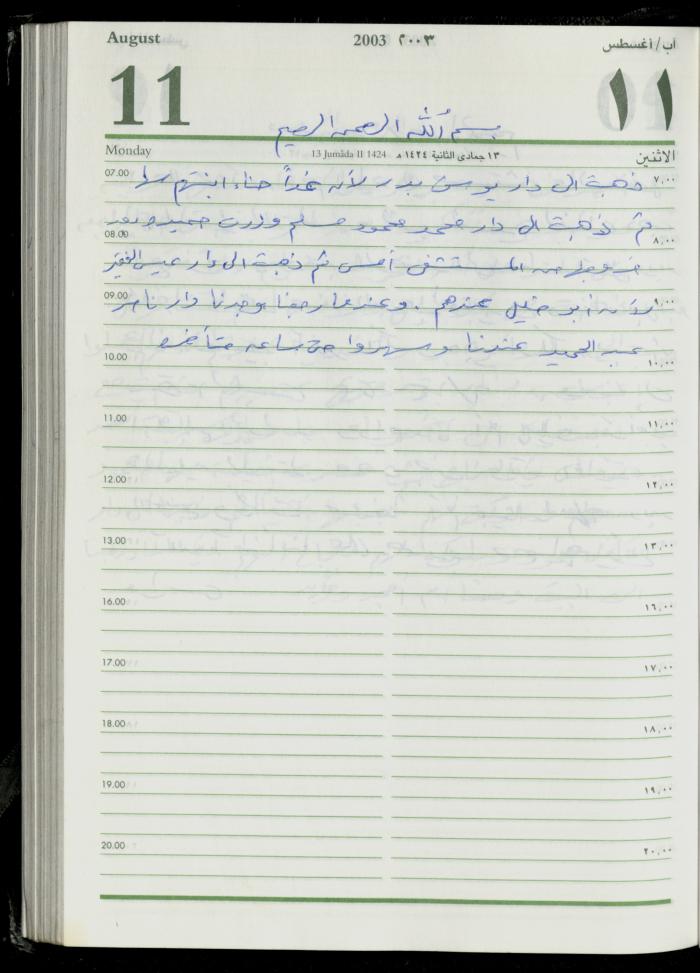 August 2003 ٢٠٠٣ آب/أغسطس
11 ١١
بسم الله الرحمن الرحيم
Monday 13 Jumāda II 1424 ١٣ جمادى الثانية ١٤٢٤ هـ الاثنين
07.00 ٧,٠٠
ذهبت الى دار يوسف بدر لأنه غداً حناء ابنتهم
ثم ذهبت الى دار محمد محمود مسلم وزرت حميده بعد
08.00 ٨,٠٠
خروجها من المستشفى أمس ثم ذهبت الى دار
09.00 ٩,٠٠
لأنه أبو خليل عندهم . وعندما رجعنا وجدنا دار ناصر
عبد الحميد عندنا وسهروا حتى ساعه متأخره
10.00 ١٠,٠٠
11.00 ١١,٠٠
12.00 ١٢,٠٠
13.00 ١٣,٠٠
16.00 ١٦,٠٠
17.00 ١٧,٠٠
18.00 ١٨,٠٠
19.00 ١٩,٠٠
20.00 ٢٠,٠٠